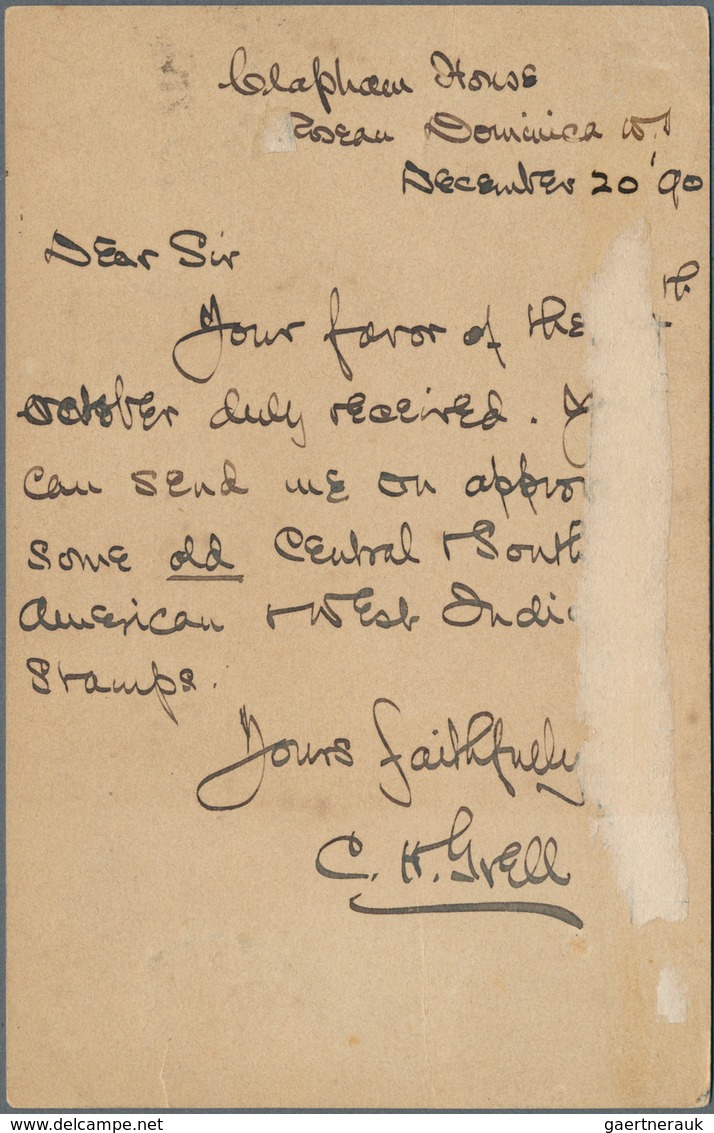 Clapham House
Roseau Dominica W.I
December 20 '90
Dear Sir
Your favor of the th
October duly received.
can send me on
some old Central & South
American & West
Stamps.
Yours faithfully
C. H. Grell
delcampe.net
gaertnerauk